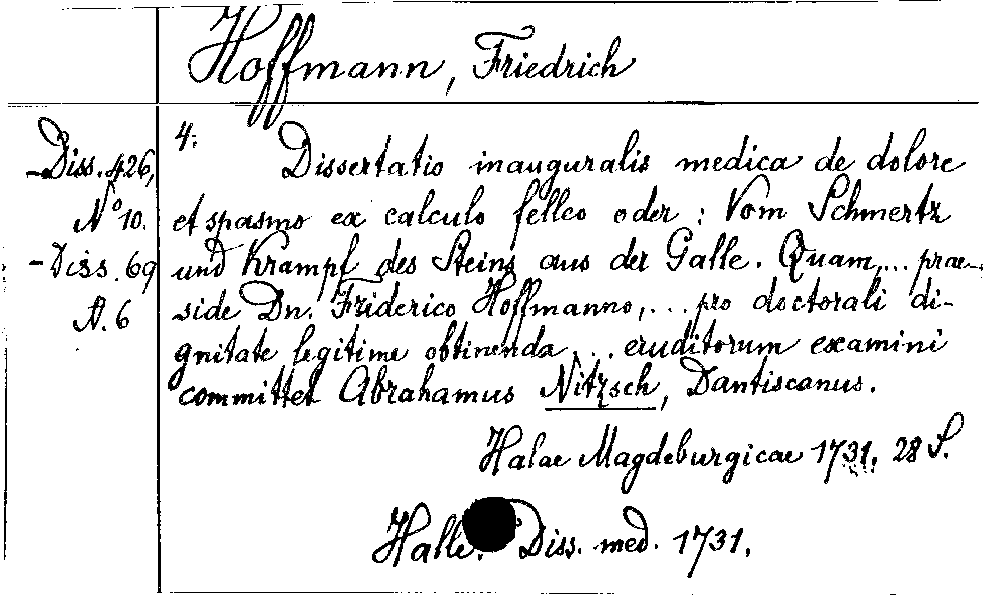 Hoffmann, Friedrich
Diss. 426,
N° 10.
Diss. 69
A. 6
4. Dissertatio inauguralis medica de dolore
et spasmo ex calculo felleo oder: Vom Schmertz
und Krampf des Steins aus der Galle. Quam... prae-
side Dn. Friderico Hoffmanno,... pro doctorali di-
gnitate legitime obtinenda... eruditorum examini
committet Abrahamus Nitzsch, Dantiscanus.
Halae Magdeburgicae 1731. 28 S.
Halle. Diss. med. 1731.